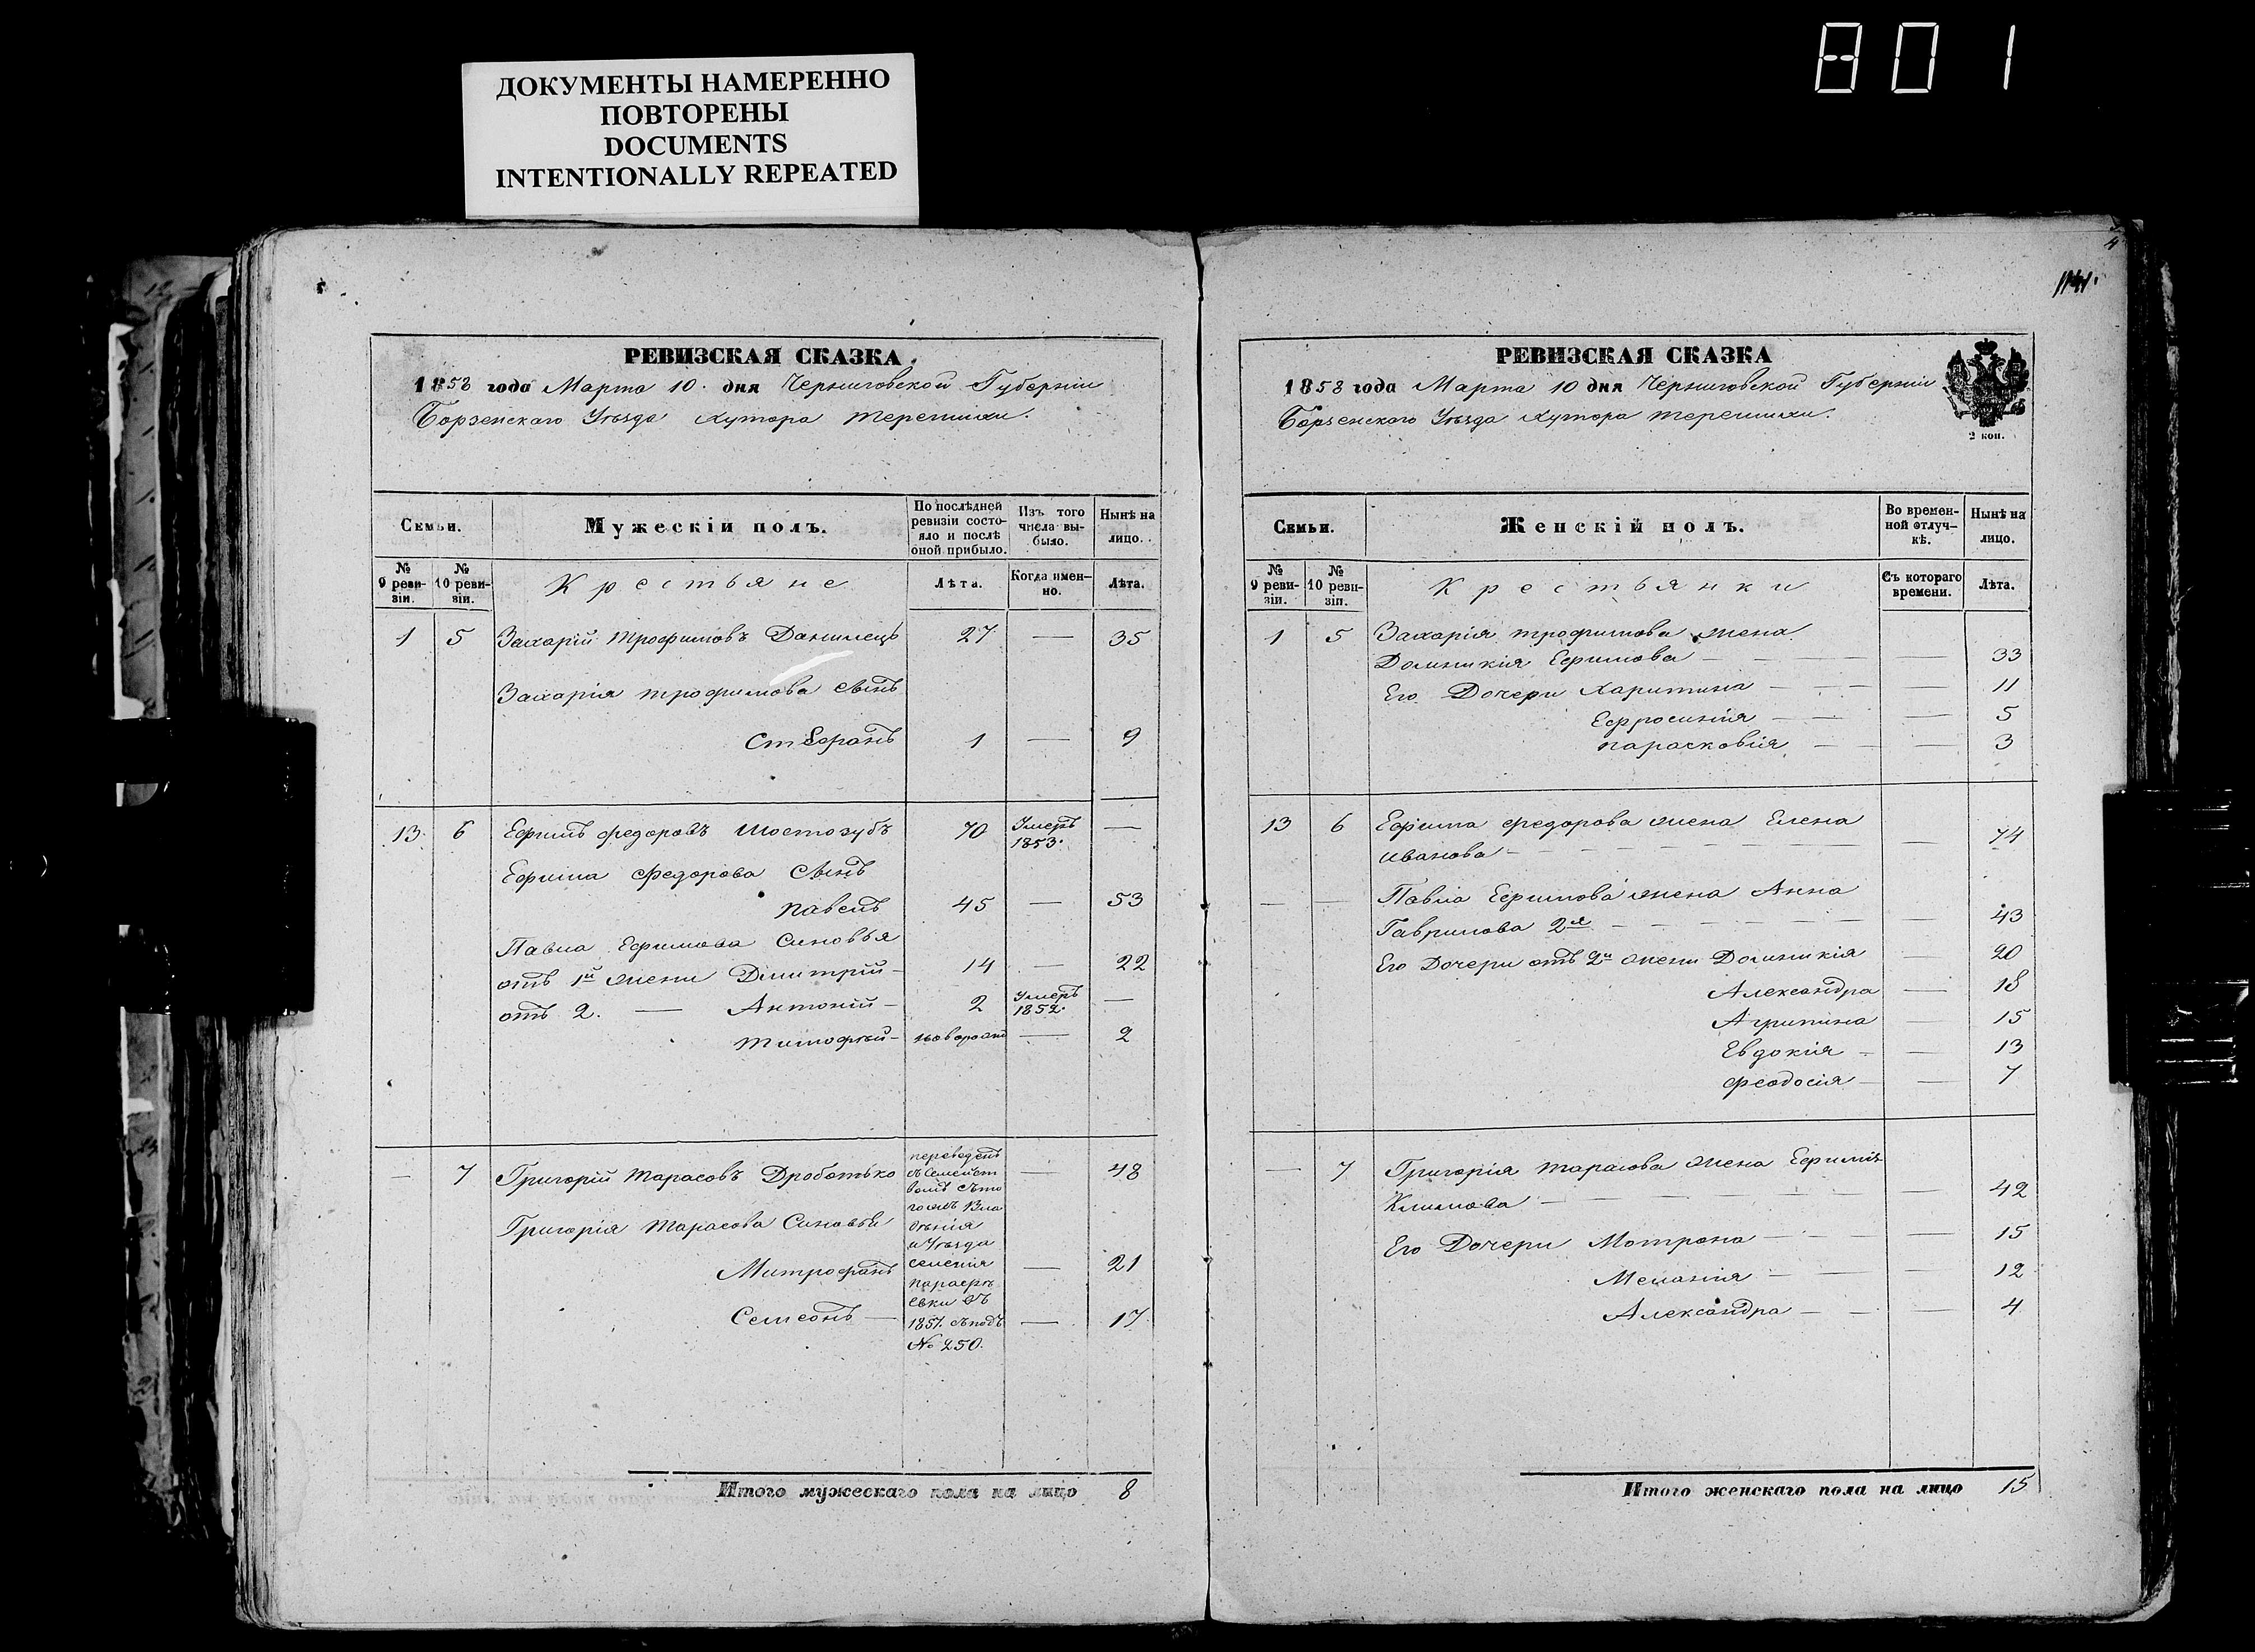 801
ДОКУМЕНТЫ НАМЕРЕННО
ПОВТОРЕНЫ
DOCUMENTS
INTENTIONALLY REPEATED
РЕВИЗСКАЯ СКАЗКА.
1858 года Марта 10. дня Черниговской Губерніи
Борзенскаго Уѣзда хутора Терешихи.
Семьи.
Мужескій полъ.
По послѣдней ревизіи состояло и послѣ оной прибыло.
Изъ того числа выбыло.
Нынѣ на лицо.
№ 9 ревизіи.
№ 10 ревизіи.
Крестьяне
Лѣта.
Когда именно.
Лѣта.
1 5 Захарій Трофимовъ Данилецъ 27 — 35
Захарія Трофимова Сынъ
Стефанъ 1 — 9
13. 6 Ефимъ Федоровъ Шостозубъ 70 Умеръ 1853. —
Ефима Федорова Сынъ
Павелъ 45 — 53
Павла Ефимова Сыновья
отъ 1й жены Дмитрій — 14 — 22
отъ 2. — Антоній — 2 Умеръ 1852. —
Тимофѣй — новорожд — 2
— 7 Григорій Тарасовъ Дроботько — 48
Григорія Тарасова Сыновья
Митрофанъ — 21
Семенъ — — 17
переведенъ
съ Семейст
вомъ съто
гожъ Вла
дѣнія
и Уѣзда
селенія
Парафѣ
евки въ
1857. съподъ
№ 250.
Итого мужескаго пола на лицо 8
4
1141.
РЕВИЗСКАЯ СКАЗКА
1858 года Марта 10 дня Черниговской Губерніи
Борзенскаго Уѣзда хутора Терешихи.
2 коп.
Семьи.
Женскій полъ.
Во временной отлучкѣ.
Нынѣ на лицо.
№ 9 ревизіи.
№ 10 ревизіи.
Крестьянки
Съ котораго времени.
Лѣта.
1 5 Захарія Трофимова жена
Домникія Ефимова — — 33
Его Дочери Харитина — — 11
Ефросинія — — 5
Парасковія — — 3
13 6 Ефима Федорова жена Елена
Иванова — — 74
— — Павла Ефимова жена Анна
Гаврилова 2я — — 43
Его Дочери отъ 2й жены Домникія — 20
Александра — 18
Агрипина — 15
Евдокія — — 13
Феодосія — — 7
— 7 Григорія Тарасова жена Ефимія
Климова — — 42
Его Дочери Мотрона — — 15
Меланія — — 12
Александра — — 4
Итого женскаго пола на лицо 15